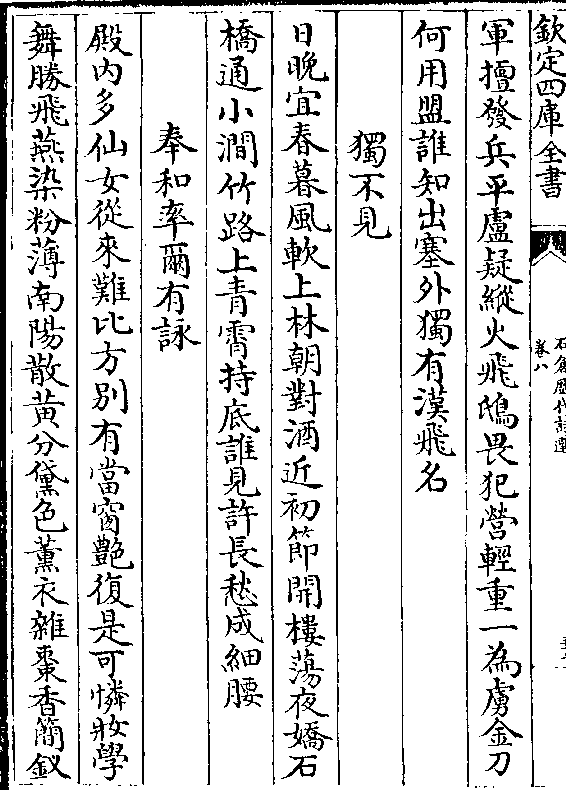 欽定四庫全書
石倉歷代詩選
卷八
軍擅發兵平盧疑縱火飛鴟畏犯營輕重一為虜金刀
何用盟誰知出塞外獨有漢飛名
獨不見
日晚宜春暮風軟上林朝對酒近初節開樓蕩夜嬌石
橋通小澗竹路上青霄持底誰見許長愁成細腰
奉和率爾有詠
殿内多仙女從來難比方别有當窗艶復是可憐妝學
舞勝飛燕染粉薄南陽散黄分黛色薰衣雜棗香簡釵